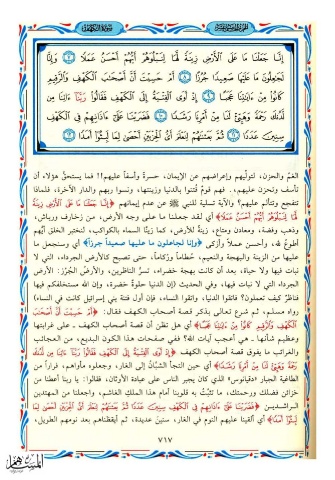 الجزء الخامس عشر
سورة الكهف
إِنَّا جَعَلْنَا مَا عَلَى الْأَرْضِ زِينَةً لَّهَا لِنَبْلُوَهُمْ أَيُّهُمْ أَحْسَنُ عَمَلًا ٧ وَإِنَّا
لَجَاعِلُونَ مَا عَلَيْهَا صَعِيدًا جُرُزًا ٨ أَمْ حَسِبْتَ أَنَّ أَصْحَابَ الْكَهْفِ وَالرَّقِيمِ
كَانُوا مِنْ آيَاتِنَا عَجَبًا ٩ إِذْ أَوَى الْفِتْيَةُ إِلَى الْكَهْفِ فَقَالُوا رَبَّنَا آتِنَا مِن
لَّدُنكَ رَحْمَةً وَهَيِّئْ لَنَا مِنْ أَمْرِنَا رَشَدًا ١٠ فَضَرَبْنَا عَلَى آذَانِهِمْ فِي الْكَهْفِ
سِنِينَ عَدَدًا ١١ ثُمَّ بَعَثْنَاهُمْ لِنَعْلَمَ أَيُّ الْحِزْبَيْنِ أَحْصَى لِمَا لَبِثُوا أَمَدًا ١٢
الغمّ والحزن، لتولّيهم وإعراضهم عن الإيمان، حسرةً وأسفاً عليهم!! فما يستحقّ هؤلاء أن
تأسف وتحزن عليهم، فهم قومٌ فُتنوا بالدنيا وزينتها، ونسوا ربهم والدار الآخرة، فلماذا
تتفجع وتتألم عليهم؟ والآية تسلية للنبي ﷺ عن عدم إيمانهم ﴿إِنَّا جَعَلْنَا مَا عَلَى الْأَرْضِ زِينَةً
لَّهَا لِنَبْلُوَهُمْ أَيُّهُمْ أَحْسَنُ عَمَلًا﴾ أي لقد جعلنا ما على وجه الأرض، من زخارف ورياش،
وذهب وفضة، ومعادن ومتاع، زينةً للأرض، كما زينّا السماء بالكواكب، لنختبر الخلق أيّهم
أطوعُ لله، وأحسن عملاً وأزكى ﴿وإنا لجاعلون ما عليها صعيداً جرزاً﴾ أي وسنجعل ما
عليها من الزينة والبهجة والنعيم، حُطاماً وركاماً، حتى تصبح كالأرض الجرداء، التي لا
نبات فيها ولا حياة، بعد أن كانت بهجة خضراء، تسرُّ الناظرين، والأرضُ الجُرُز: الأرض
الجرداء التي لا نبات فيها، وفي الحديث (إن الدنيا حلوةٌ خضرة، وإن الله مستخلفكم فيها
فناظرٌ كيف تعملون؟ فاتقوا الدنيا، واتقوا النساء، فإن أول فتنة بني إسرائيل كانت في النساء)
رواه مسلم، ثم شرع تعالى بذكر قصة أصحاب الكهف فقال: ﴿أَمْ حَسِبْتَ أَنَّ أَصْحَابَ
الْكَهْفِ وَالرَّقِيمِ كَانُوا مِنْ آيَاتِنَا عَجَبًا﴾ أي هل تظن أن قصة أصحاب الكهف ـ على غرابتها
وعظيم شأنها ـ هي أعجب آيات الله؟ ففي صفحات هذا الكون البديع، من العجائب
والغرائب ما يفوق قصة أصحاب الكهف ﴿إِذْ أَوَى الْفِتْيَةُ إِلَى الْكَهْفِ فَقَالُوا رَبَّنَا آتِنَا مِن لَّدُنكَ
رَحْمَةً وَهَيِّئْ لَنَا مِنْ أَمْرِنَا رَشَدًا﴾ أي حين التجأ الشبّانُ إلى الغار، وجعلوه مأواهم، فراراً من
الطاغية الجبار «دقيانوس» الذي كان يجبر الناس على عبادة الأوثان، فقالوا: يا ربنا أعطنا من
خزائن فضلك ورحمتك، ما تثبّتُ به قلوبنا أمام هذا الملِك الغاشم، واجعلنا من المهتدين
الراشدين ﴿فَضَرَبْنَا عَلَى آذَانِهِمْ فِي الْكَهْفِ سِنِينَ عَدَدًا ثُمَّ بَعَثْنَاهُمْ لِنَعْلَمَ أَيُّ الْحِزْبَيْنِ أَحْصَى لِمَا
لَبِثُوا أَمَدًا﴾ أي ألقينا عليهم النوم في الغار، سنين عديدة، ثم أيقظناهم بعد نومهم الطويل،
٧١٧